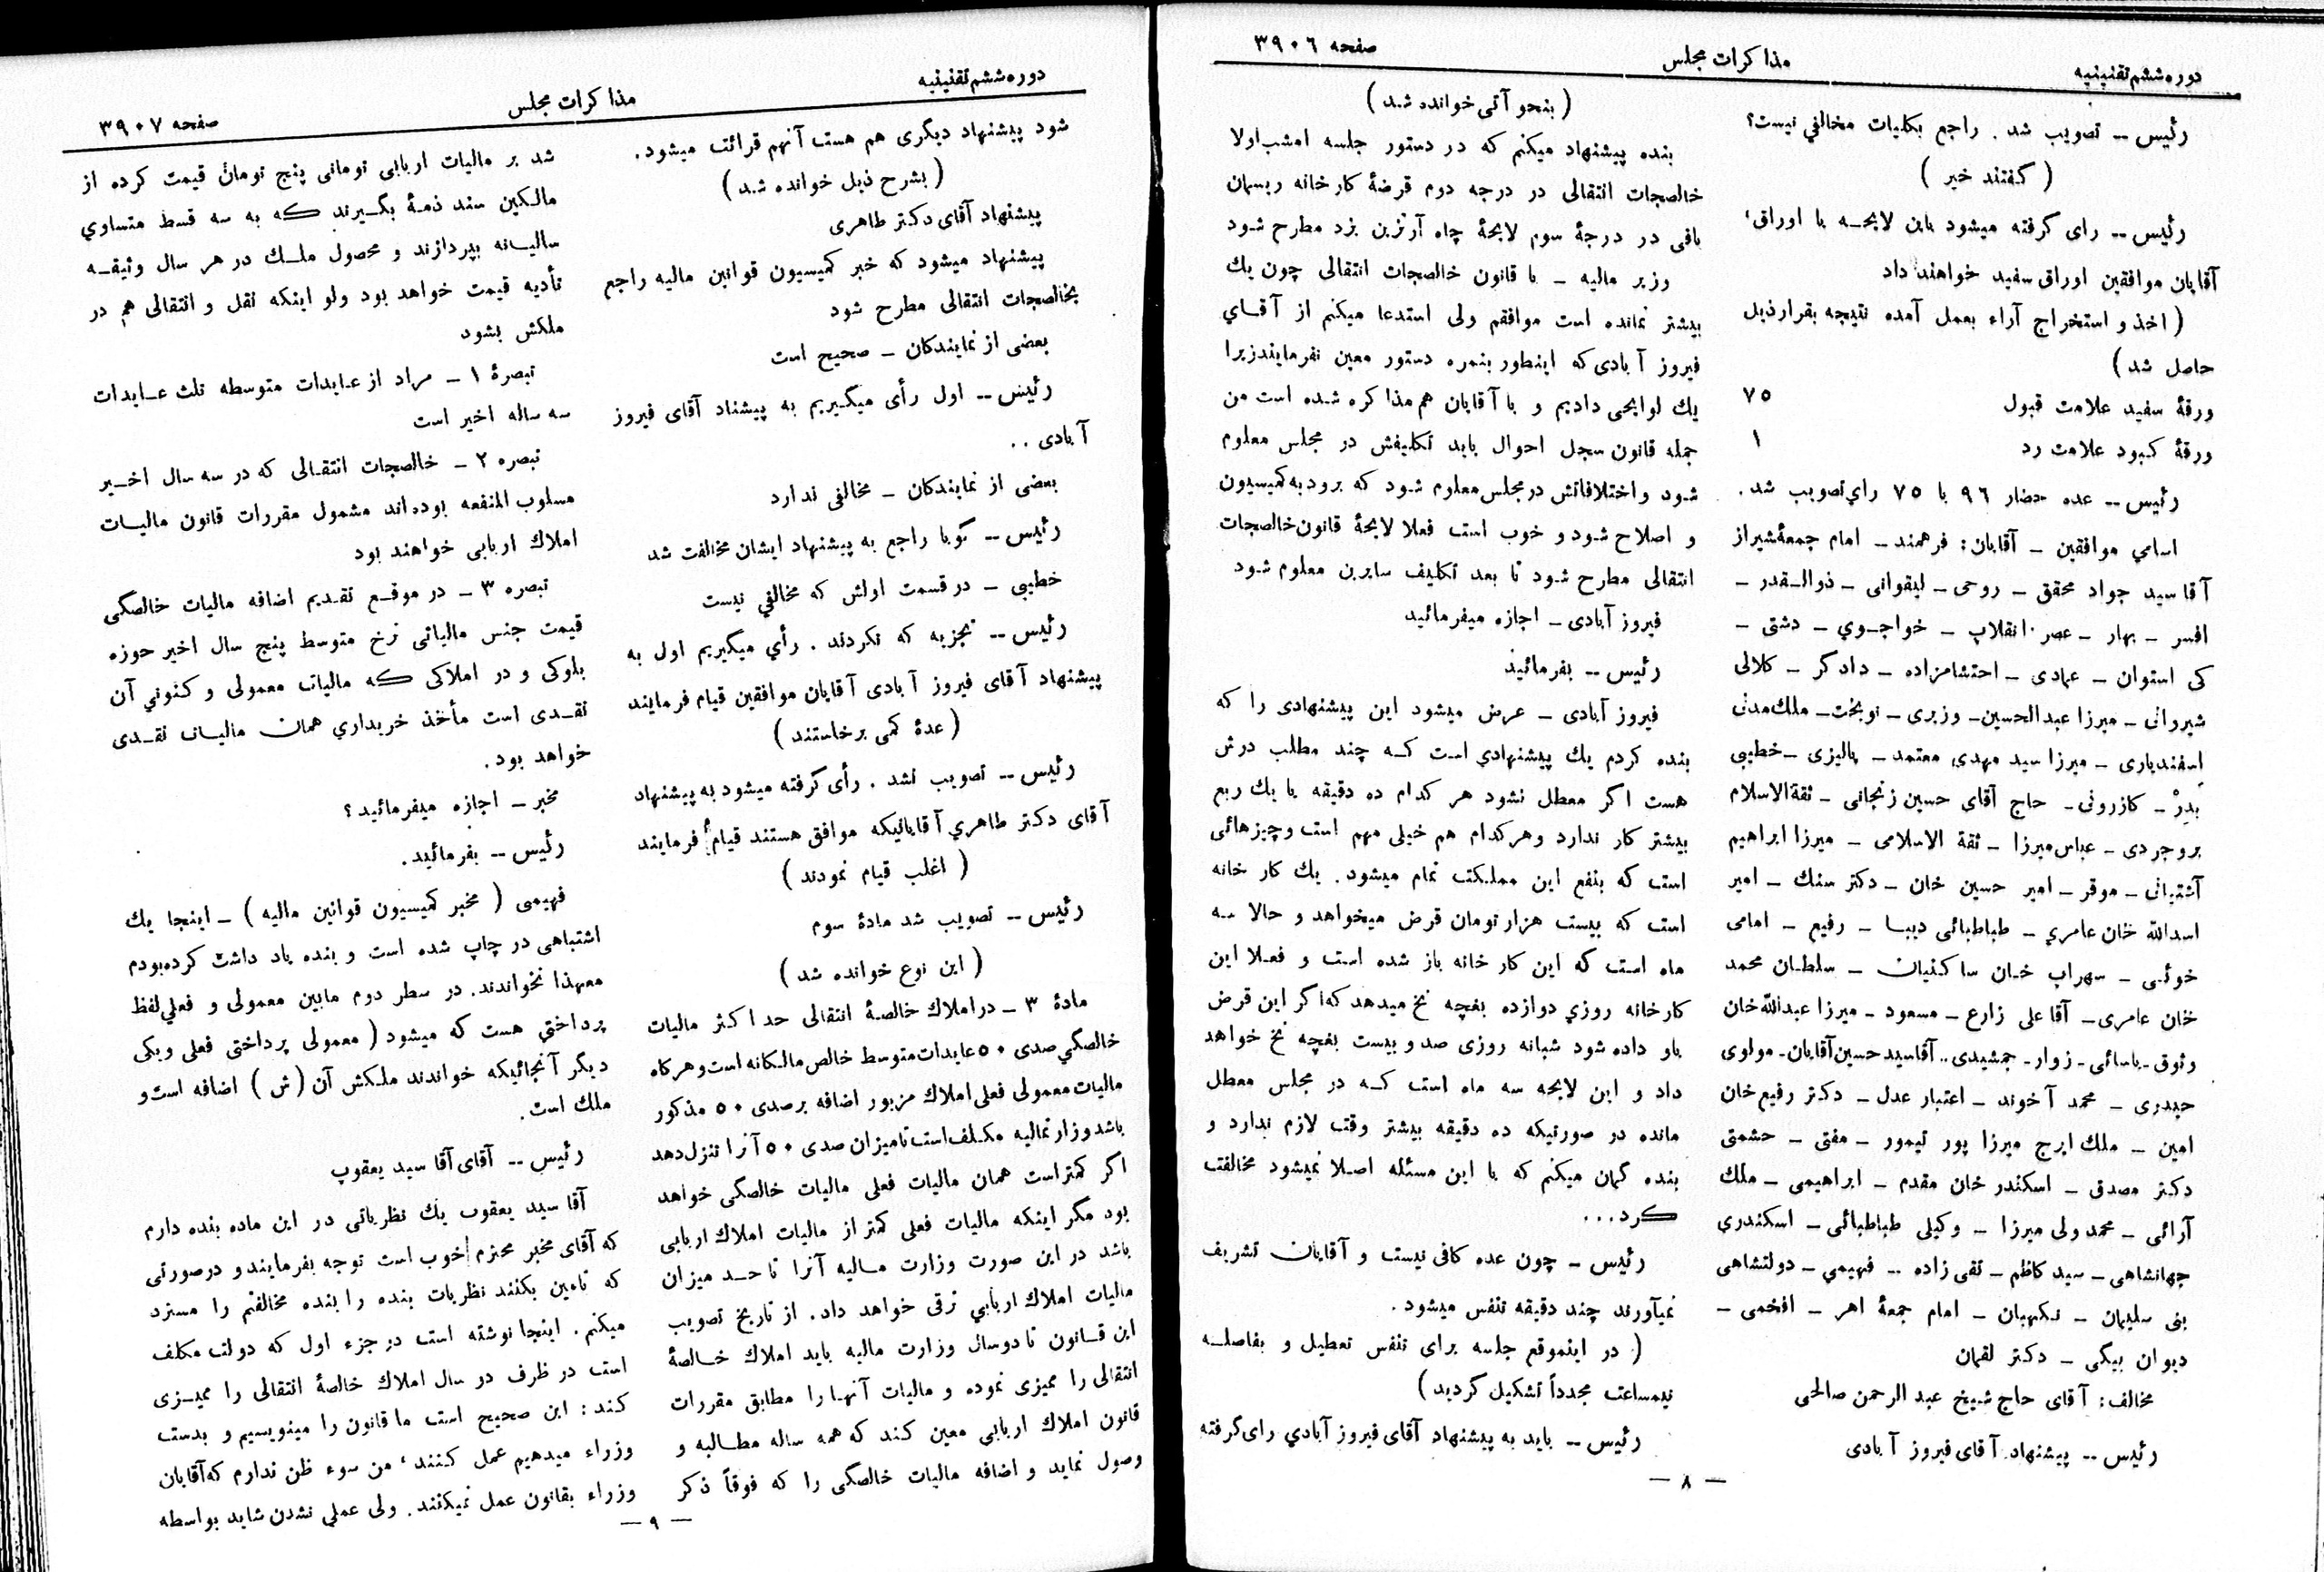 دوره ششم تقنینیه
مذاکرات مجلس
صفحه ۳۹۰۶
رئیس -- تصویب شد . راجع بکلیات مخالفی نیست؟
( گفتند خیر )
رئیس -- رای گرفته میشود باین لایحه با اوراق،
آقایان موافقین اوراق سفید خواهند داد
( اخذ و استخراج آراء بعمل آمده نتیجه بقرار ذیل
حاصل شد )
ورقهٔ سفید علامت قبول ۷۵
ورقهٔ کبود علامت رد ۱
رئیس -- عده حضار ۹۶ با ۷۵ رای تصویب شد .
اسامی موافقین - آقایان : فرهمند - امام جمعهٔ شیراز
آقا سید جواد محقق - روحی - لیقوانی - ذوالقدر -
افسر - بهار - عصر انقلاب - خواجوی - دشتی -
کی استوان - عمادی - احتشامزاده - دادگر - کلالی
شیروانی - میرزا عبدالحسین - وزیری - نوبخت - ملک مدنی
اسفندیاری - میرزا سید مهدی معتمد - پالیزی - خطیبی
بدر - کازرونی - حاج آقای حسین زنجانی - ثقة الاسلام
بروجردی - عباس میرزا - ثقة الاسلامی - میرزا ابراهیم
آشتیانی - موقر - امیر حسین خان - دکتر سنک - امیر
اسدالله خان عامری - طباطبائی دیبا - رفیع - امامی
خوئی - سهراب خان ساکنیان - سلطان محمد
خان عامری - آقا علی زارع - مسعود - میرزا عبدالله خان
وثوق - یاسائی - زوار - جمشیدی .. آقاسید حسین آقایان - مولوی
حیدری - محمد آخوند - اعتبار عدل - دکتر رفیع خان
امین - ملک ایرج میرزا پور تیمور - مفتی - حشمتی
دکتر مصدق - اسکندر خان مقدم - ابراهیمی - ملک
آرائی - محمد ولی میرزا - وکیلی طباطبائی - اسکندری
جهانشاهی - سید کاظم - تقی زاده .. فهیمی - دولتشاهی
بنی سلیمان - نگهبان - امام جمعهٔ اهر - افخمی -
دیوان بیگی - دکتر لقمان
مخالف : آقای حاج شیخ عبد الرحمن صالحی
رئیس -- پیشنهاد آقای فیروز آبادی
( بنحو آتی خوانده شد )
بنده پیشنهاد میکنم که در دستور جلسه امشب اولا
خالصجات انتقالی در درجه دوم قرضهٔ کارخانه ریسمان
بافی در درجهٔ سوم لایحهٔ چاه آرتزین یزد مطرح شود
وزیر مالیه - با قانون خالصجات انتقالی چون یك
بیشتر نمانده است موافقم ولی استدعا میکنم از آقای
فیروز آبادی که اینطور بنمره دستور معین نفرمایند زیرا
یك لوایحی دادیم و با آقایان هم مذاکره شده است من
جمله قانون سجل احوال باید تکلیفش در مجلس معلوم
شود و اختلافاتش در مجلس معلوم شود که برود به کمیسیون
و اصلاح شود و خوب است فعلا لایحهٔ قانون خالصجات
انتقالی مطرح شود تا بعد تکلیف سایرین معلوم شود
فیروز آبادی - اجازه میفرمائید
رئیس -- بفرمائید
فیروز آبادی - عرض میشود این پیشنهادی را که
بنده کردم یك پیشنهادی است که چند مطلب درش
هست اگر معطل نشود هر کدام ده دقیقه یا یك ربع
بیشتر کار ندارد و هر کدام هم خیلی مهم است و چیزهائی
است که بنفع این مملکت تمام میشود . یك کار خانه
است که بیست هزار تومان قرض میخواهد و حالا سه
ماه است که این کار خانه باز شده است و فعلا این
کارخانه روزی دوازده بغچه نخ میدهد که اگر این قرض
باو داده شود شبانه روزی صد و بیست بغچه نخ خواهد
داد و این لایحه سه ماه است که در مجلس معطل
مانده در صورتیکه ده دقیقه بیشتر وقت لازم ندارد و
بنده گمان میکنم که با این مسئله اصلا نمیشود مخالفت
کرد...
رئیس - چون عده کافی نیست و آقایان تشریف
نمیآورند چند دقیقه تنفس میشود .
( در اینموقع جلسه برای تنفس تعطیل و بفاصله
نیمساعت مجدداً تشکیل گردید )
رئیس -- باید به پیشنهاد آقای فیروز آبادی رای گرفته
- ۸ -
دوره ششم تقنینیه
مذاکرات مجلس
صفحه ۳۹۰۷
شود پیشنهاد دیگری هم هست آنهم قرائت میشود .
( بشرح ذیل خوانده شد )
پیشنهاد آقای دکتر طاهری
پیشنهاد میشود که خبر کمیسیون قوانین مالیه راجع
بخالصجات انتقالی مطرح شود
بعضی از نمایندکان - صحیح است
رئیس -- اول رأی میگیریم به پیشناد آقای فیروز
آبادی ..
بعضی از نمایندکان - مخالفی ندارد
رئیس -- گویا راجع به پیشنهاد ایشان مخالفت شد
خطیبی - در قسمت اولش که مخالفی نیست
رئیس -- تجزیه که نکردند . رأی میگیریم اول به
پیشنهاد آقای فیروز آبادی آقایان موافقین قیام فرمایند
( عدهٔ کمی برخاستند )
رئیس -- تصویب نشد . رأی گرفته میشود به پیشنهاد
آقای دکتر طاهری آقایانیکه موافق هستند قیام فرمایند
( اغلب قیام نمودند )
رئیس -- تصویب شد مادهٔ سوم
( این نوع خوانده شد )
مادهٔ ۳ - در املاك خالصهٔ انتقالی حداکثر مالیات
خالصگی صدی ۵۰ عایدات متوسط خالص مالکانه است و هرکاه
مالیات معمولی فعلی املاك مزبور اضافه بر صدی ۵۰ مذکور
باشد وزارتمالیه مکلف است تا میزان صدی ۵۰ آنرا تنزل دهد
اگر کمتر است همان مالیات فعلی مالیات خالصگی خواهد
بود مگر اینکه مالیات فعلی کمتر از مالیات املاك اربابی
باشد در این صورت وزارت مالیه آنرا تا حد میزان
مالیات املاك اربابی ترقی خواهد داد. از تاریخ تصویب
این قانون تا دوسال وزارت مالیه باید املاك خالصهٔ
انتقالی را ممیزی نموده و مالیات آنها را مطابق مقررات
قانون املاك اربابی معین کند که همه ساله مطالبه و
وصول نماید و اضافه مالیات خالصگی را که فوقاً ذکر
شد بر مالیات اربابی تومانی پنج تومان قیمت کرده از
مالکین سند ذمهٔ بگیرند که به سه قسط متساوی
سالیانه بپردازند و محصول ملك در هر سال وثیقه
تأدیه قیمت خواهد بود ولو اینکه نقل و انتقالی هم در
ملکش بشود
تبصرهٔ ۱ - مراد از عایدات متوسطه ثلث عایدات
سه ساله اخیر است
تبصره ۲ - خالصجات انتقالی که در سه سال اخیر
مسلوب المنفعه بوده‌اند مشمول مقررات قانون مالیات
املاك اربابی خواهند بود
تبصره ۳ - در موقع تقدیم اضافه مالیات خالصگی
قیمت جنس مالیاتی نرخ متوسط پنج سال اخیر حوزه
بلوکی و در املاکی که مالیات معمولی و کنونی آن
نقدی است مأخذ خریداری همان مالیات نقدی
خواهد بود .
مخبر - اجازه میفرمائید ؟
رئیس -- بفرمائید .
فهیمی ( مخبر کمیسیون قوانین مالیه ) - اینجا یك
اشتباهی در چاپ شده است و بنده یاد داشت کرده بودم
معهذا نخواندند . در سطر دوم مابین معمولی و فعلی لفظ
پرداختی هست که میشود ( معمولی پرداختی فعلی و یکی
دیگر آنجائیکه خواندند ملکش آن ( ش ) اضافه است و
ملك است .
رئیس -- آقای آقا سید یعقوب
آقا سید یعقوب یك نظریاتی در این ماده بنده دارم
که آقای مخبر محترم خوب است توجه بفرمایند و در صورتی
که تامین بکنند نظریات بنده را بنده مخالفتم را مسترد
میکنم . اینجا نوشته است در جزء اول که دولت مکلف
است در ظرف دو سال املاك خالصهٔ انتقالی را ممیزی
کند : این صحیح است ما قانون را مینویسیم و بدست
وزراء میدهیم عمل کنند ، من سوء ظن ندارم که آقایان
وزراء بقانون عمل نمیکنند . ولی عملی نشدن شاید بواسطه
- ۹ -